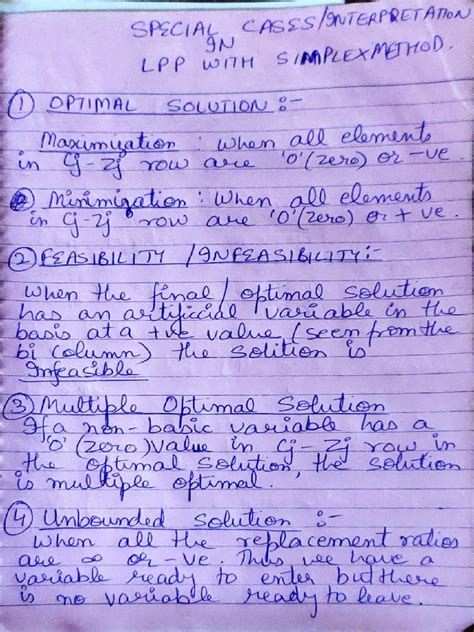 SPECIAL CASES/INTERPRETATION
IN
LPP WITH SIMPLEX METHOD.
① OPTIMAL SOLUTION :-
Maximization : When all elements
in Cj-Zj row are '0' (zero) or -ve
Minimization : When all elements
in Cj-Zj row are '0' (zero) or +ve.
② FEASIBILITY /INFEASIBILITY:-
When the final/optimal solution
has an artificial variable in the
basis at a +ve value (seen from the
bi column) the solition is
Infeasible
③ Multiple Optimal Solution
If a non-basic variable has a
'0' (zero) value in Cj-Zj row in
the optimal solution, the solution
is multiple optimal.
④ Unbounded solution :-
When all the replacement ratios
are ∞ or -ve. Thus we have a
variable ready to enter but there
is no variable ready to leave.